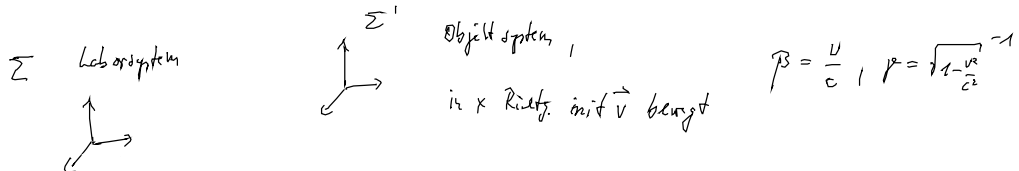 Σ Laborsystem
Σ' Objektsystem,
in x Richtg. mit v⃗ bewegt
β = v/c , γ = √(1-v²/c²)⁻¹